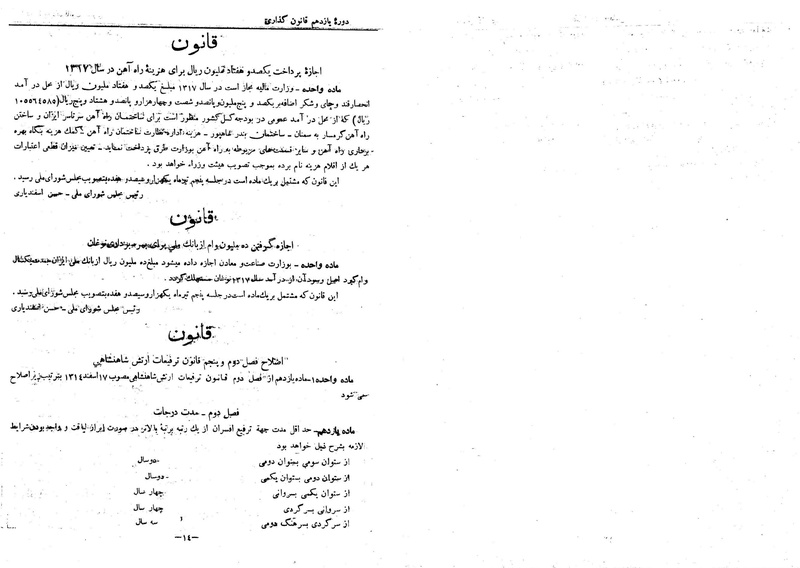 دورهٔ یازدهم قانون گذاری
قانون
اجازهٔ پرداخت یکصدو هفتاد ملیون ریال برای هزینهٔ راه آهن در سال ۱۳۱۷
ماده واحده - وزارت مالیه مجاز است در سال ۱۳۱۷ مبلغ یکصد و هفتاد ملیون ریال از محل در آمد
انحصار قند و چای و شکر اضافه بر یکصد و پنج ملیون و پانصدو شصت و چهارهزار و پانصد و هشتاد و پنج ریال (۱۰۵۵۶۴۵۸۵
ریال) که از محل در آمد عمومی در بودجه کل کشور منظور است برای ساختمان راه آهن سرتاسر ایران و ساختن
راه آهن گرمسار به سمنان - ساختمان بندر شاهپور - هزینه اداره نظارت ساختمان راه آهن کمک هزینه بنگاه بهره
برداری راه آهن و سایر قسمت‌های مربوطه به راه آهن بوزارت طرق پرداخت نماید - تعیین میزان قطعی اعتبارات
هر یک از اقلام هزینه نام برده بموجب تصویب هیئت وزراء خواهد بود .
این قانون که مشتمل بر یک ماده است در جلسه پنجم تیرماه یکهزار و سیصد و هفده بتصویب مجلس شورای ملی رسید .
رئیس مجلس شورای ملی - حسن اسفندیاری
قانون
اجازه گرفتن ده ملیون وام از بانک ملی برای بهره برداری نوغان
ماده واحده - بوزارت صناعت و معادن اجازه داده میشود مبلغ ده ملیون ریال از بانک ملی ایران بمدت یکسال
وام گیرد اصل و سود آن از در آمد سال ۱۳۱۷ نوغان مستهلک گردد .
این قانون که مشتمل بر یک ماده است در جلسه پنجم تیر ماه یکهزار و سیصد و هفده بتصویب مجلس شورای ملی رسید .
رئیس مجلس شورای ملی - حسن اسفندیاری
قانون
اصلاح فصل دوم و پنجم قانون ترفیعات ارتش شاهنشاهی
ماده واحده ۱- ماده یازدهم از فصل دوم قانون ترفیعات ارتش شاهنشاهی مصوب ۱۷ اسفند ۱۳۱۴ بترتیب زیر اصلاح
می شود
فصل دوم - مدت درجات
ماده یازدهم- حد اقل مدت جهة ترفیع افسران از یک رتبه برتبهٔ بالاتر در صورت ابراز لیاقت و واجد بودن شرایط
لازمه بشرح ذیل خواهد بود
از ستوان سومی بستوان دومی دوسال
از ستوان دومی بستوان یکمی دوسال
از ستوان یکمی بسروانی چهار سال
از سروانی بسرگردی چهار سال
از سرگردی بسرهنگ دومی سه سال
-۱۴-